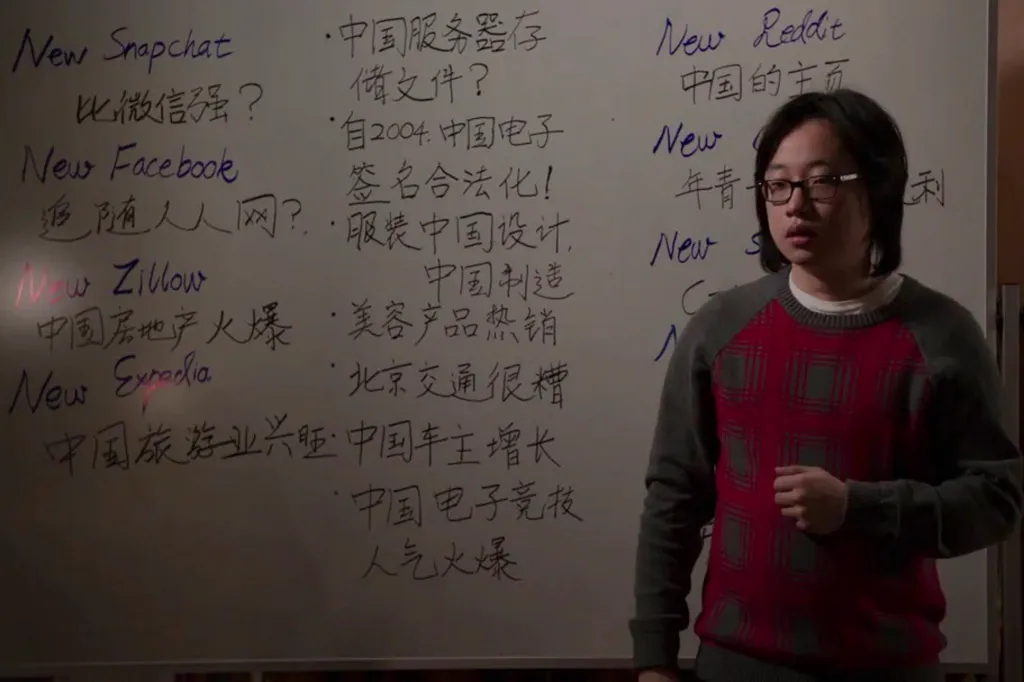 New Snapchat
比微信强?
New Facebook
追随人人网?
New Zillow
中国房地产火爆
New Expedia
中国旅游业兴旺
·中国服务器存
储文件?
·自2004.中国电子
签名合法化!
·服装中国设计,
中国制造
·美容产品热销
·北京交通很糟
·中国车主增长
·中国电子竞技
人气火爆
New Reddit
中国的主页
New
年青 利
New